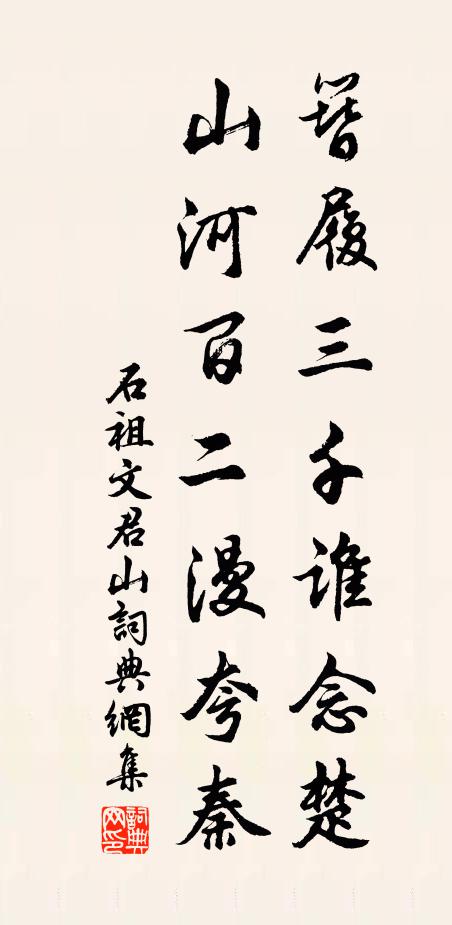 簪履三千谁念楚
山河百二漫夸秦
石祖文君山詞典網集
詞典网印